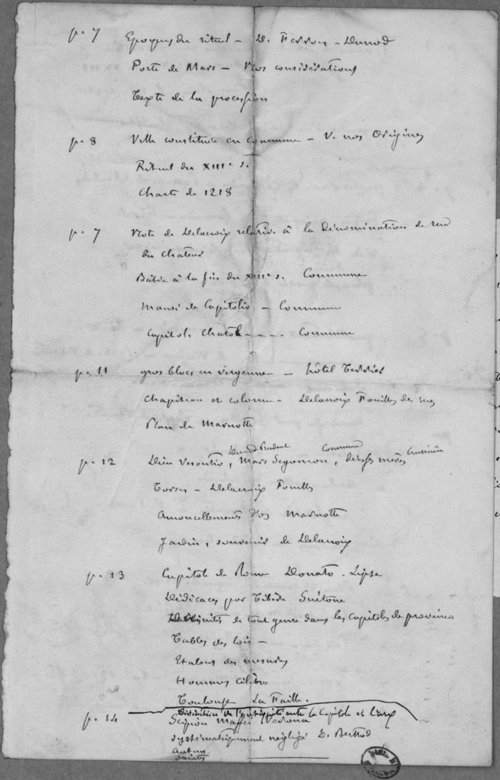 p. 7 Epoques du rituel – D. Ferron – Dunod
Porte de Mars – Nos considérations
Texte de la procession
p. 8 Ville constituée en Commune – V. nos Origines
Rituel du XIIIe s.
Charte de 1218
p. 7 Note de Delacroix relative à la dénomination de rue
du Chateur
Bâtie à la fin du XIIIe s. Commune
Mansi de Capitolio – Commune
Capitole Chatel – – – Commune
p. 11 gros blocs en vergenne – hôtel Terrier
Chapiteau et colonne – Delacroix Fouilles des rues
Plan de Marnotte
p. 12 Dieu Vesontio, Mars Segomon, déesses mères
Torses – Delacroix Fouilles
Amoncellements Marnotte
Jardin, souvenir de Delacroix
p. 13 Capitole de Rome Donato. Lipse
Dédicaces par Tibère Suétone
de tout genre dans les Capitoles de province
Tables des lois –
Etalons des mesures
Hommes célèbres
Toulouse La Faille.
entre le Capitole et l'arx
p. 14 Scipion Maffei Verona
systématiquement négligé D. Berthod